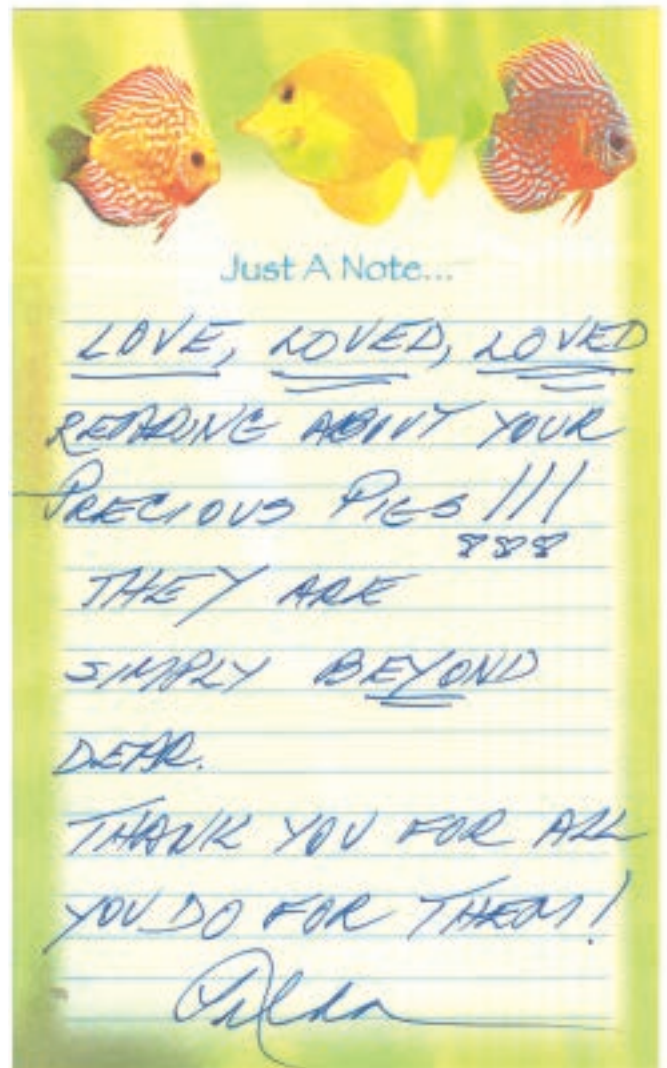 Just A Note...
LOVE, LOVED, LOVED
READING ABOUT YOUR
PRECIOUS PIGS!!!
THEY ARE
SIMPLY BEYOND
DEAR.
THANK YOU FOR ALL
YOU DO FOR THEM!